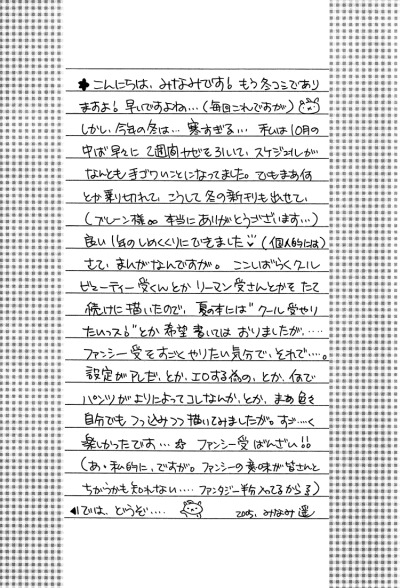 ✚こんにちは、みなみです! もう冬コミであり
ますよ! 早いですよね…(毎回これですが)
しかし、今年の冬は… 寒すぎる… 私は10月の
中ば早々に 2週間カゼを引いて、スケジュールが
なんとも手ごわいことになってました。でもまあ何
とか乗り切れて、こうして冬の新刊も出せて、
(ブレーン様∞ 本当にありがとうございます…)
良い1年のしめくくりにできました(個人的には)
さて、まんがなんですが。 ここしばらくクール
ビューティー受くんとか リーマン受さんとかを たて
続けに描いたので、夏の本には"クール受やり
たいっス!"とか希望 書いては おりましたが、……
ファンシー受を すごくやりたい気分で、それで……。
設定がアレだ、とか、エロする為の、とか、何で
パンツがよりによってコレなんか、とか、まぁ色々
自分でも つっ込みつつ描いてみましたが。すご……く
楽しかったです…☆ ファンシー受 ばんざい!!
(あ・私的に、ですが。ファンシーの意味が皆さんと
ちがうかも知れない…… ファンタジー半分入ってるからる)
◀では、どうぞ…… 2005. みなみ 遥